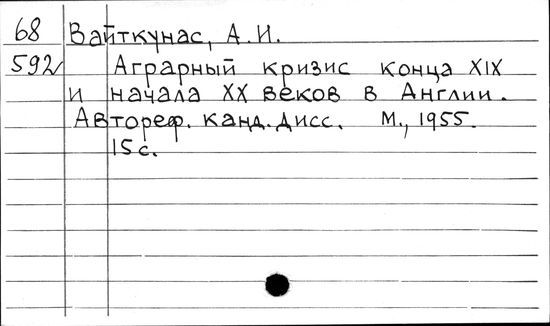 68 Вайткунас, А.И.
592 Аграрный кризис конца XIX
и начала XX веков в Англии.
Автореф. канд. дисс. М., 1955.
15 с.